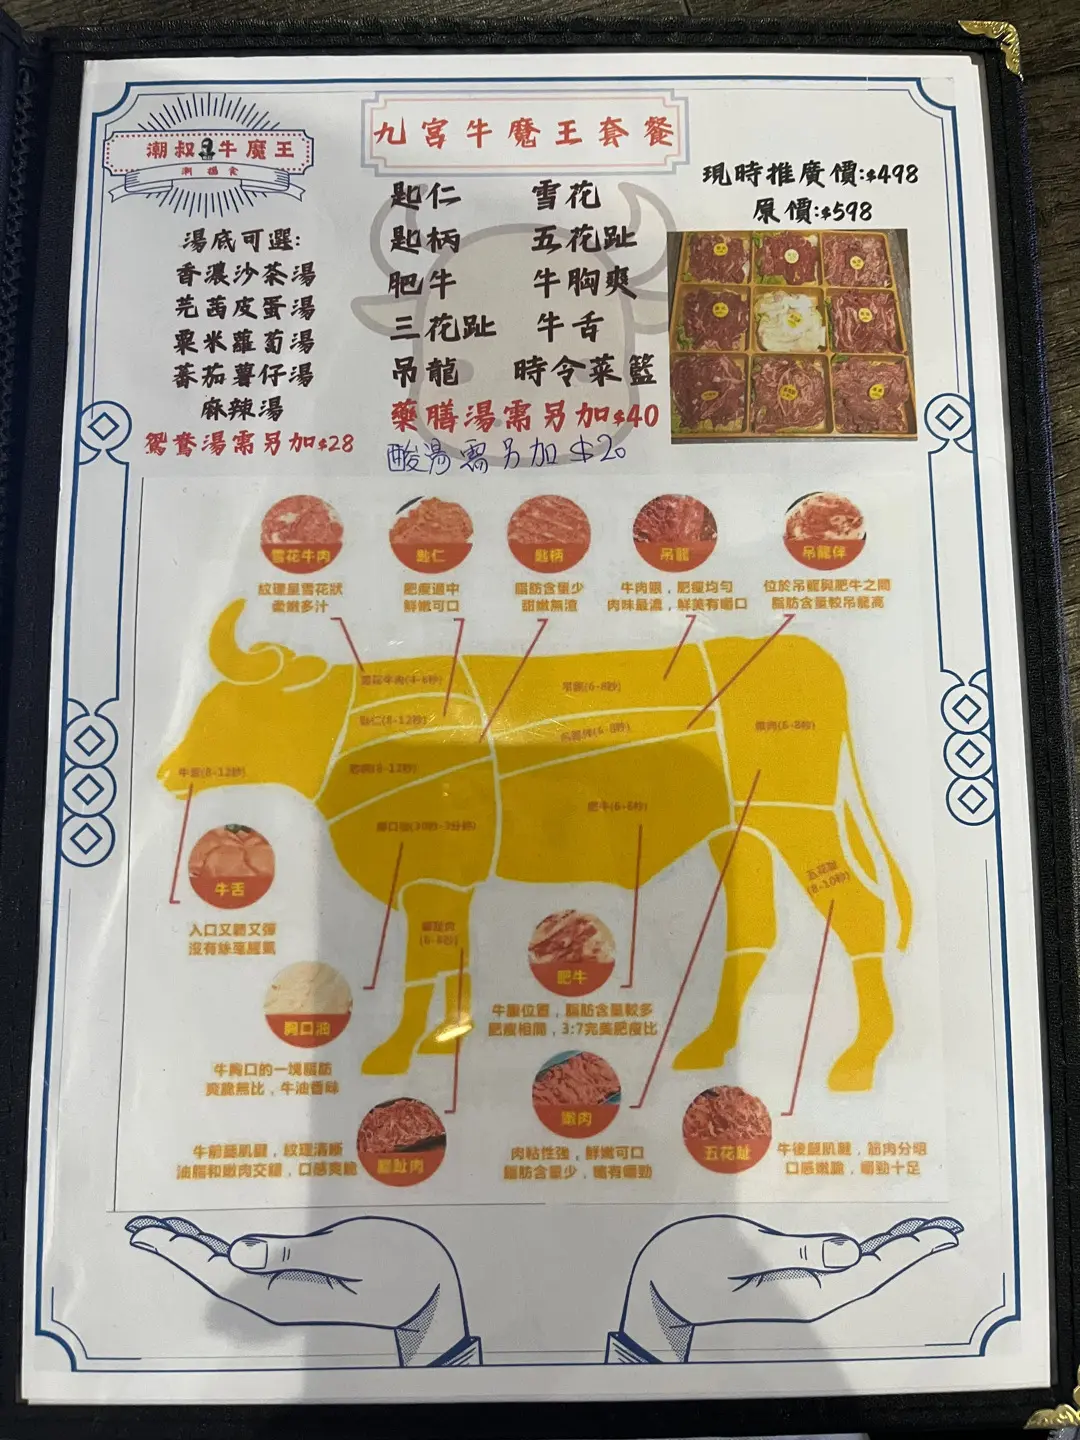 潮叔 牛魔王
潮揚食
九宮牛魔王套餐
現時推廣價:$498
原價:$598
湯底可選:
香濃沙茶湯
芫茜皮蛋湯
粟米蘿蔔湯
蕃茄薯仔湯
麻辣湯
鴛鴦湯需另加$28
匙仁 雪花
匙柄 五花趾
肥牛 牛胸爽
三花趾 牛舌
吊龍 時令菜籃
藥膳湯需另加$40
酸湯需另加$20
雪花牛肉
紋理呈雪花狀
柔嫩多汁
匙仁
肥瘦適中
鮮嫩可口
匙柄
脂肪含量少
甜嫩無渣
吊龍
牛肉眼，肥瘦均勻
肉味最濃，鮮美有嚼口
吊龍伴
位於吊龍與肥牛之間
脂肪含量較吊龍高
雪花牛肉(4-6秒)
匙仁(8-12秒)
匙柄(8-12秒)
吊龍(6-8秒)
吊龍伴(6-8秒)
嫩肉(6-8秒)
牛舌(8-12秒)
肥牛(6-8秒)
五花趾
(8-10秒)
牛舌
入口又脆又彈
沒有絲毫腥氣
胸口油
牛胸口的一塊脂肪
爽脆無比，牛油香味
肥牛
牛腩位置，脂肪含量較多
肥瘦相間，3:7完美肥瘦比
腳趾肉
牛前腿肌腱，紋理清晰
油脂和嫩肉交織，口感爽脆
嫩肉
肉粘性強，鮮嫩可口
脂肪含量少，嫩有嚼勁
五花趾
牛後腿肌腱，筋肉分明
口感嫩脆，嚼勁十足